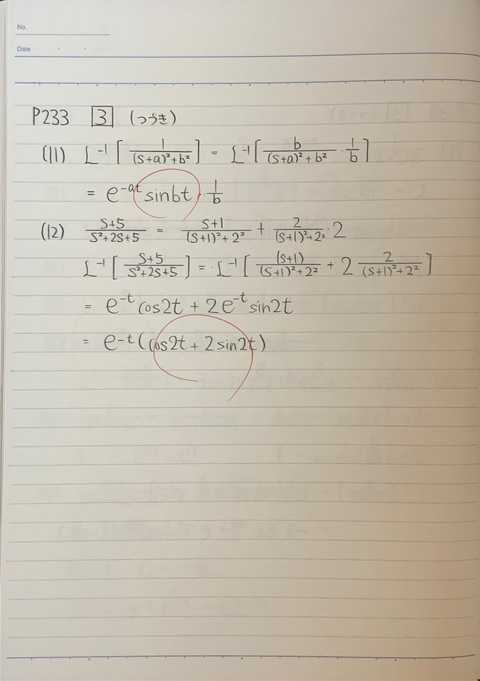 No.
Date
P233 3 (つづき)
(11) L⁻¹[1/((s+a)²+b²)] = L⁻¹[b/((s+a)²+b²)・1/b]
= e⁻ᵃᵗsinbt・1/b
(12) (s+5)/(s²+2s+5) = (s+1)/((s+1)²+2²) + 2/((s+1)²+2²)・2
L⁻¹[(s+5)/(s²+2s+5)] = L⁻¹[(s+1)/((s+1)²+2²) + 2 2/((s+1)²+2²)]
= e⁻ᵗcos2t + 2e⁻ᵗsin2t
= e⁻ᵗ(cos2t + 2sin2t)